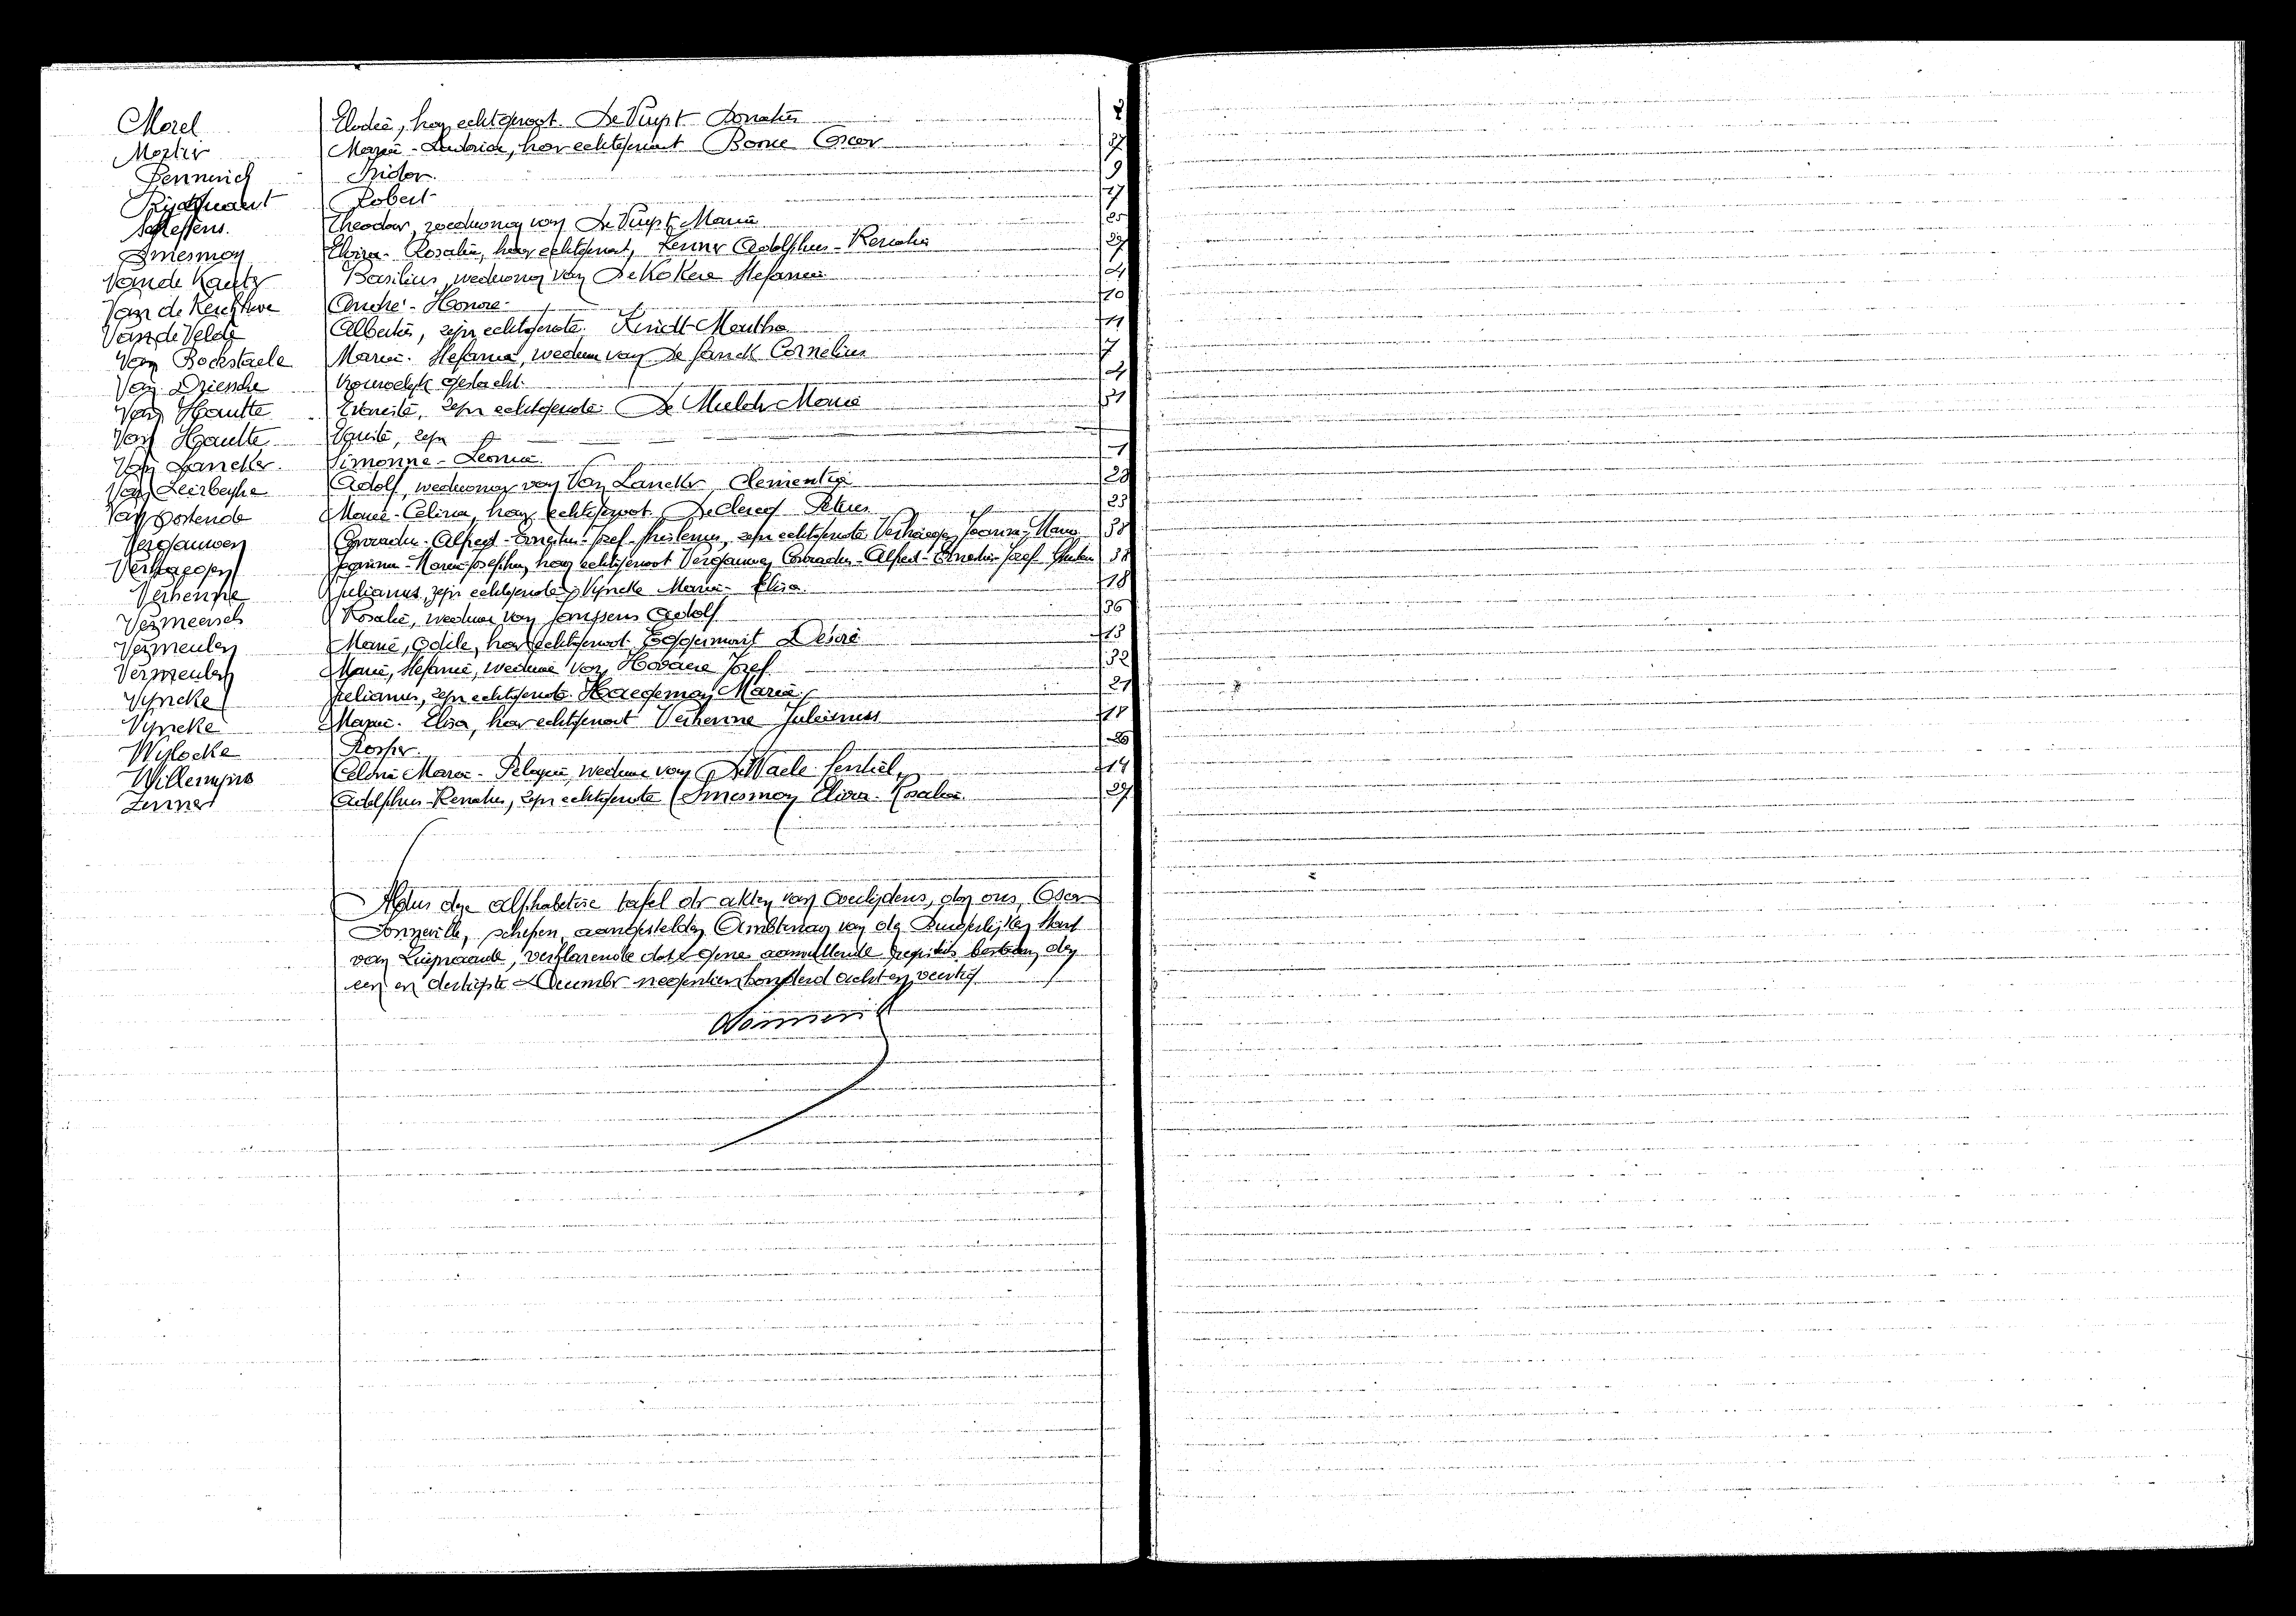 Morel Elodie, haar echtgenoot. De Vuyst Donatus 2
Mortier Maria-Ludovica, haar echtgenoot Borne Oscar 37
Pennewick Isidor 9
Rijckaert Robert 27
Steffens. Theodor, weduwnaar van De Vuyst Maria 25
Smesman Elvira-Rosalia, haar echtgenoot, Zenner Adolphus-Renatus 29
Van de Kauter Basilius, weduwnaar van De Kokere Stefanie 4
Van de Kerckhove André-Honoré 10
Van de Velde Albertus, zijn echtgenote. Kindt Martha 11
Van Bockstaele Maria-Stefanie, weduwe van De Janck Cornelius 7
Van Driessche Vrouwelijk geslacht 4
Van Hautte zijn echtgenote De Mulder Maria 31
Van Hautte zijn
Van Lancker Simonne-Leonie 1
Van Leirberghe Adolf, weduwnaar van Van Lancker Clementia 28
Van Oostende Maria-Celina, haar echtgenoot De Clercq Petrus 23
Vergauwen Conradus-Alfred- -Jozef- zijn echtgenote Verhaegen Joanna-Maria 38
Verhaegen Joanna-Maria-Josephus, haar echtgenoot Vergauwen Conradus-Alfred- -Jozef 38
Verhenne Julianus, zijn echtgenote Vyncke Maria-Elisa 18
Vermeersch Rosalie, weduwe van Janssens Adolf 36
Vermeulen Marie, Odile, haar echtgenoot Eggermont Desiré 15
Vermeulen Marie, Stefanie, weduwe van Jozef 32
Vyncke Julianus, zijn echtgenote. Haegeman Maria 21
Vyncke Maria-Elisa, haar echtgenoot Verhenne Julianus 18
Wylocke 26
Willempins Celina Maria-Pelagia, weduwe van De Waele 14
Zenner Adolphus-Renatus, zijn echtgenote Smesman Elvira-Rosalia 29
Aldus deze alphabetise tafel der akten van overlijdens, door ons, Oscar
schepen, aangestelden Ambtenaar van den Burgerlijken Stand
van verklarende dat gene aanvullende registers bestaan, den
een en dertigste December negentienhonderd acht en veertig